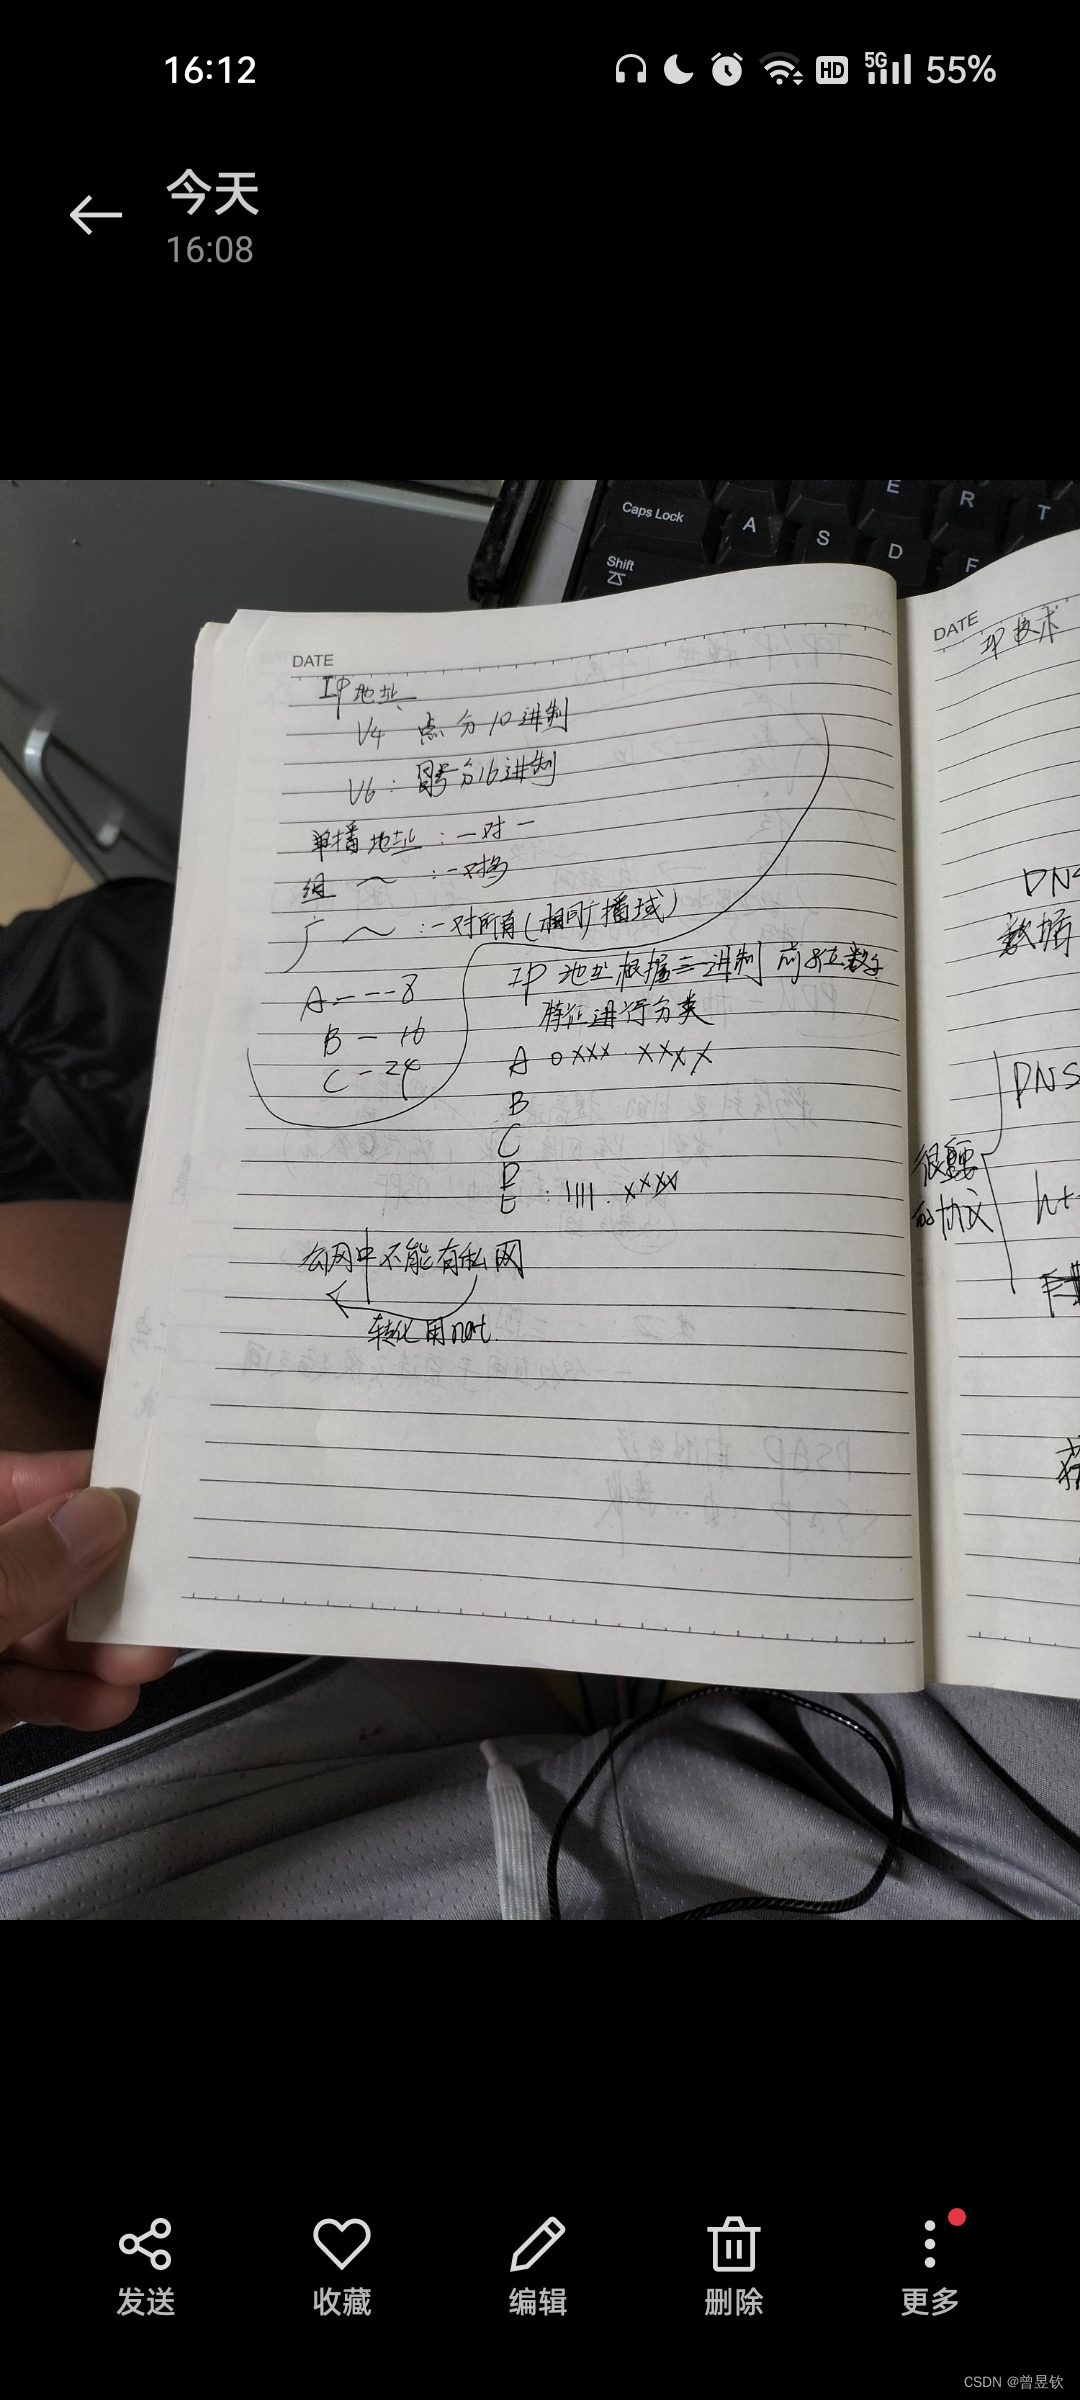 16:12
HD 5G 55%
今天
16:08
Caps Lock
A
S
D
F
E
R
T
Shift
DATE
IP地址
V4 点分10进制
V6：冒号分16进制
单播地址：一对一
组 ～ ：一对多
广 ～ ：一对所有(相同广播域)
A---8
B-16
C-24
IP地址根据二进制前8位数字
特征进行分类
A 0xxx.xxxx
B
C
D
E：1111.xxxx
公网中不能有私网
转化用nat.
DATE
IP技术
DNS
数据
DNS
很重要
的协议
ht
发送
收藏
编辑
删除
更多
CSDN @曾昱钦